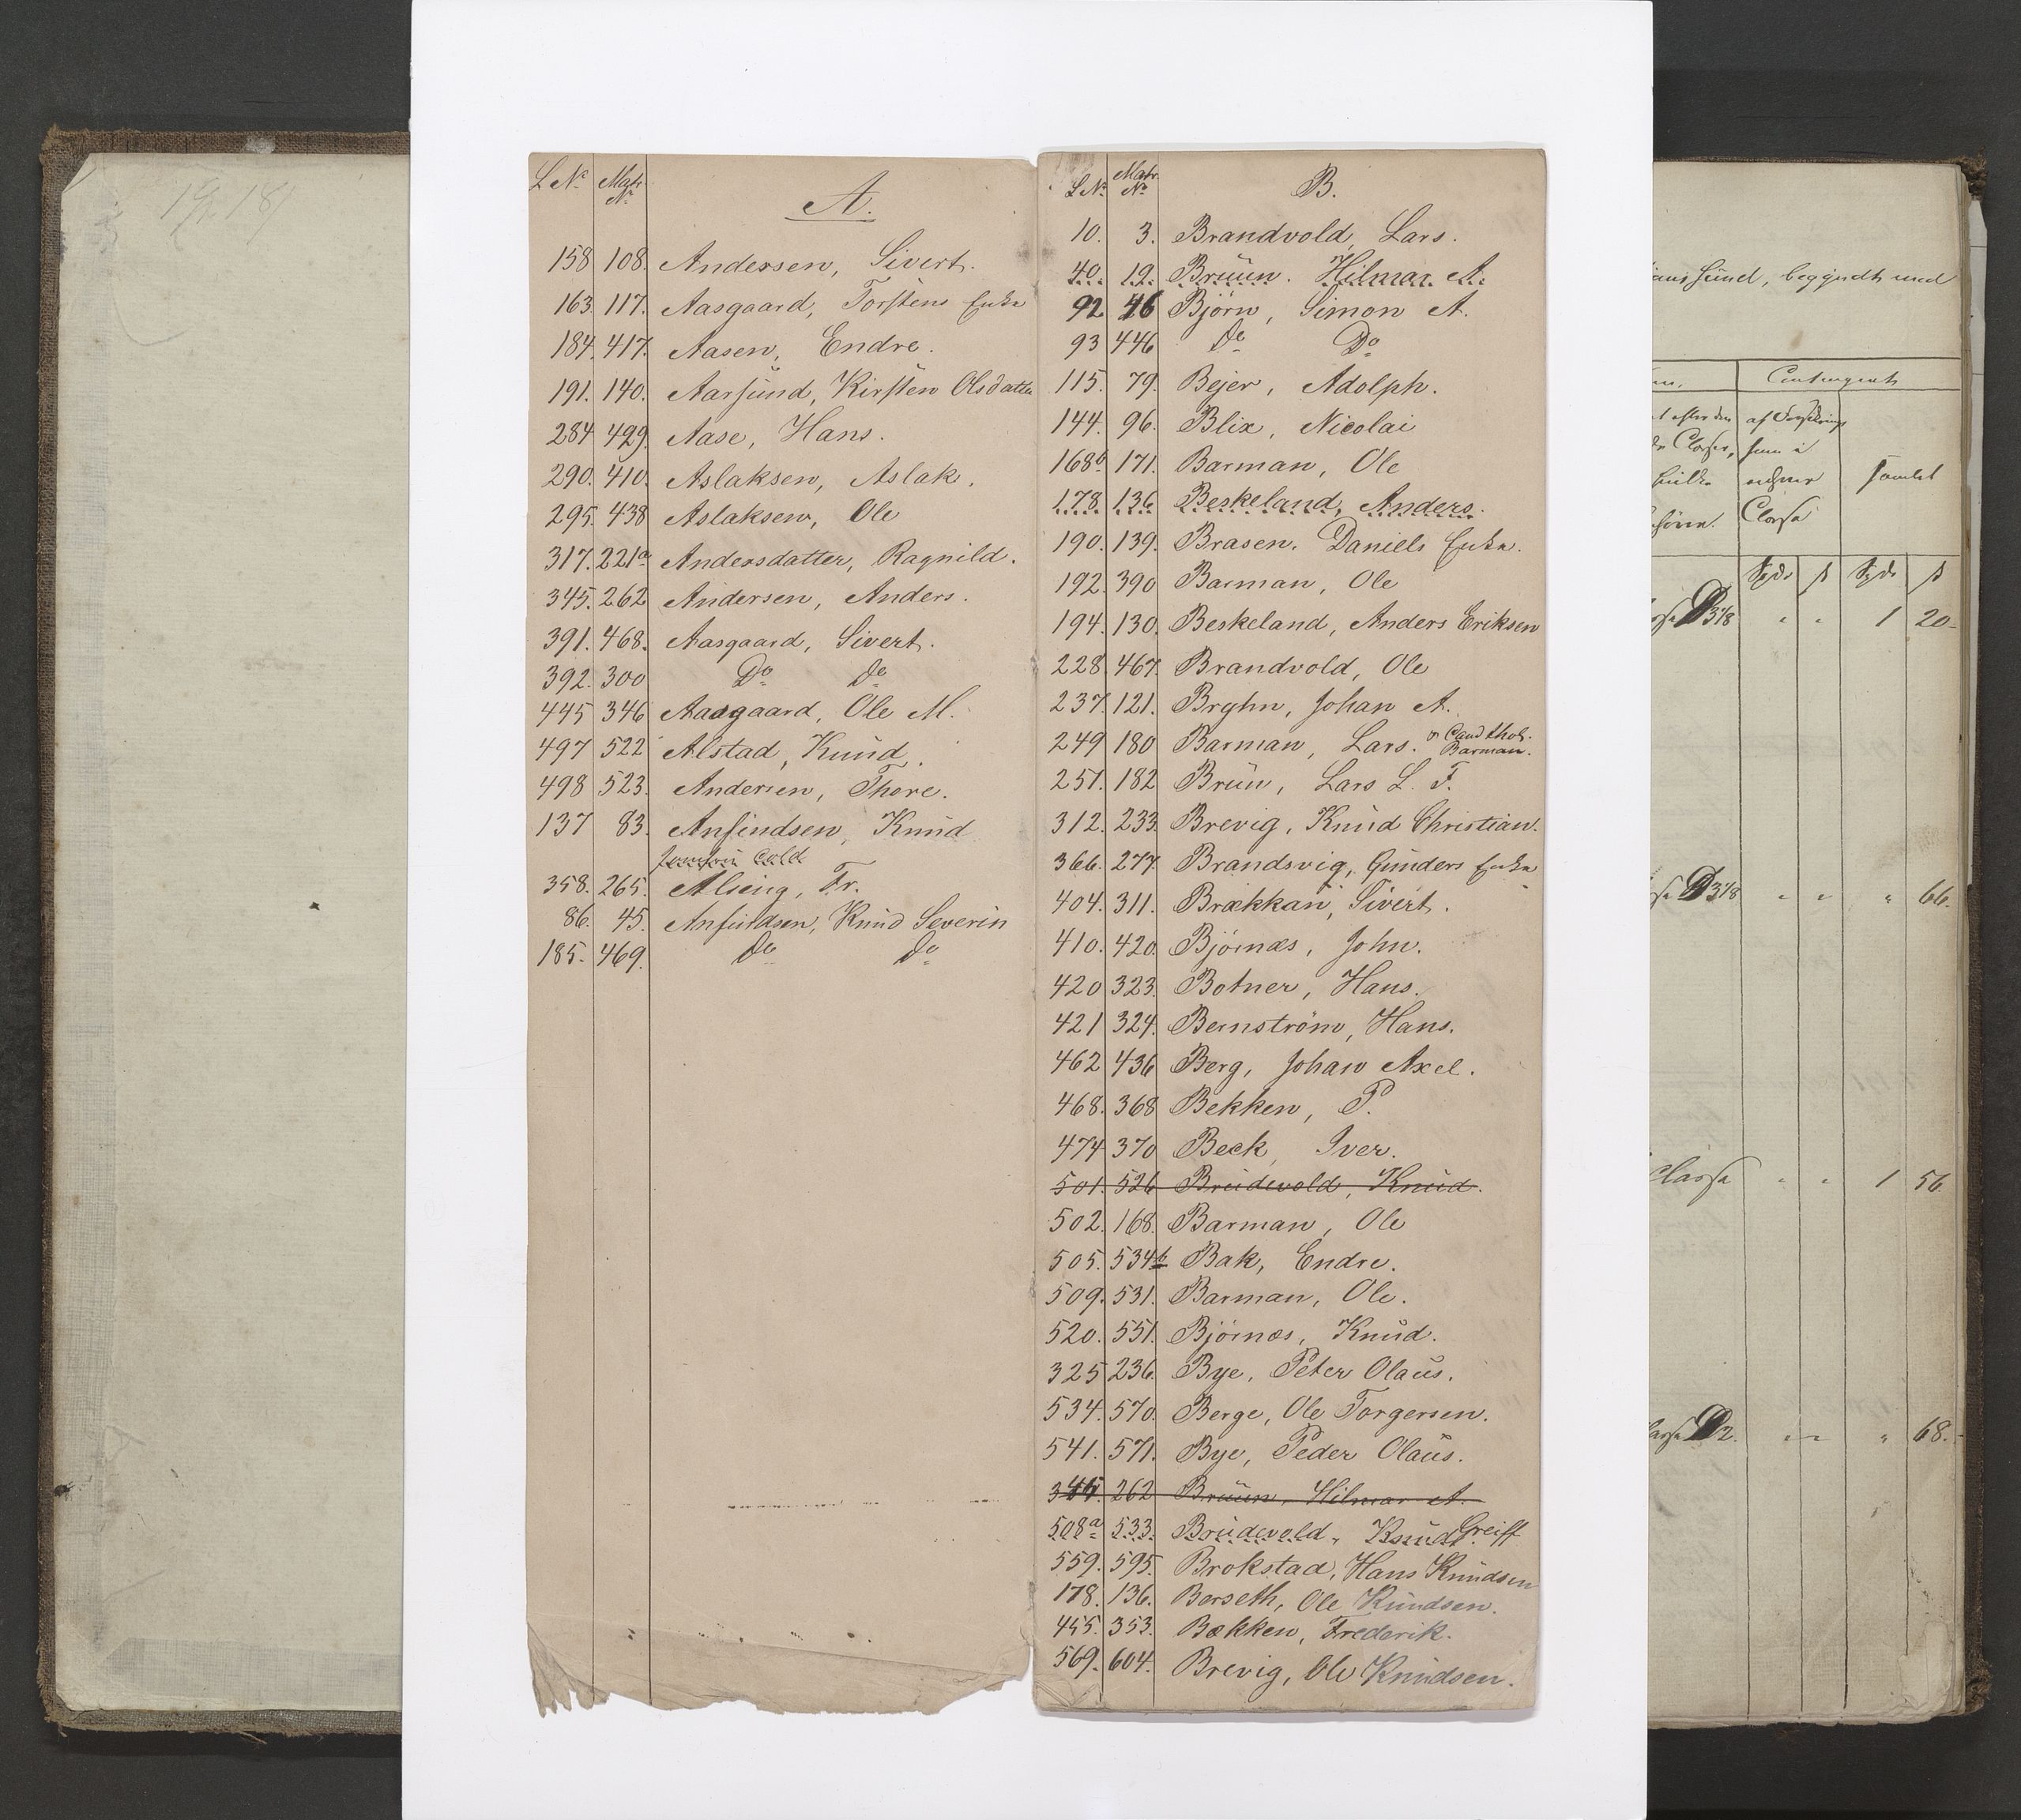 L No Matr. No
A.
158 108. Andersen, Sivert.
163. 117. Aasgaard, Torstens Enke
184. 417. Aasen, Endre.
191. 140. Aarsund, Kirsten Olsdatter
284 429. Aase, Hans.
290. 410. Aslaksen, Aslak.
295. 438 Aslaksen, Ole
317. 221a Andersdatter, Ragnild.
345. 262 Andersen, Anders.
391. 468. Aasgaard, Sivert.
392. 300 Do do
445 346 Aasgaard, Ole M.
497 522 Alstad, Knud.
498 523. Andersen, Thore.
137 83. Anfindsen, Knud
358. 265. Alsing, Fr.
86. 45. Anfindsen, Knud Severin
185. 469. do do
L No. Matr. No
B.
10. 3. Brandvold, Lars.
40. 19. Bruun. Hilmar A.
92 46 Björn, Simon A.
93 446 do Do
115. 79. Bejer, Adolph.
144. 96. Blix, Nicolai
168b 171. Barman, Ole
178. 136 Beskeland, Anders.
190. 139. Brasen. Daniels Enke.
192. 390 Barman, Ole
194. 130. Beskeland, Anders Eriksen
228. 467. Brandvold, Ole
237. 121. Bryhn, Johan A.
249 180 Barman, Lars. Barman.
251. 182 Brun, Lars L. F.
312. 233. Brevig, Knud Christian.
366. 277. Brandsvig, Gunders Enke
404. 311. Brækkan, Sivert.
410. 420. Björnæs, John.
420 323. Botner, Hans.
421 324. Bernström, Hans.
462 436 Berg, Johan Axel.
468. 368 Bekken, P.
474 370 Beck, Iver.
501. 526 Brudevold, Knud.
502. 168. Barman, Ole
505. 534b Bak, Endre.
509. 531. Barman, Ole.
520. 551. Björnæs, Knud.
325 236. Bye, Peter Olaus.
534. 570. Berge, Ole Torgersen.
541. 571. Bye, Peder Olaus.
345. 262 Bruun, Hilmar A.
508a 533. Brudevold, Knud Greiff
559. 595. Brokstad, Hans Knudsen
178. 136. Berseth, Ole Knudsen.
455. 353. Bækken, Frederik.
569. 604. Brevig, Ole Knudsen.
sund, begyndt med
Contingent
t efter den af Forsikrings
Classe, sum i
hvilke enhver samlet
Classe
Spd ß Spd ß
D 3/8 " " 1 20
D 3/8 " " " 66.
Classe " " 1 56
D 2. " " " 68.